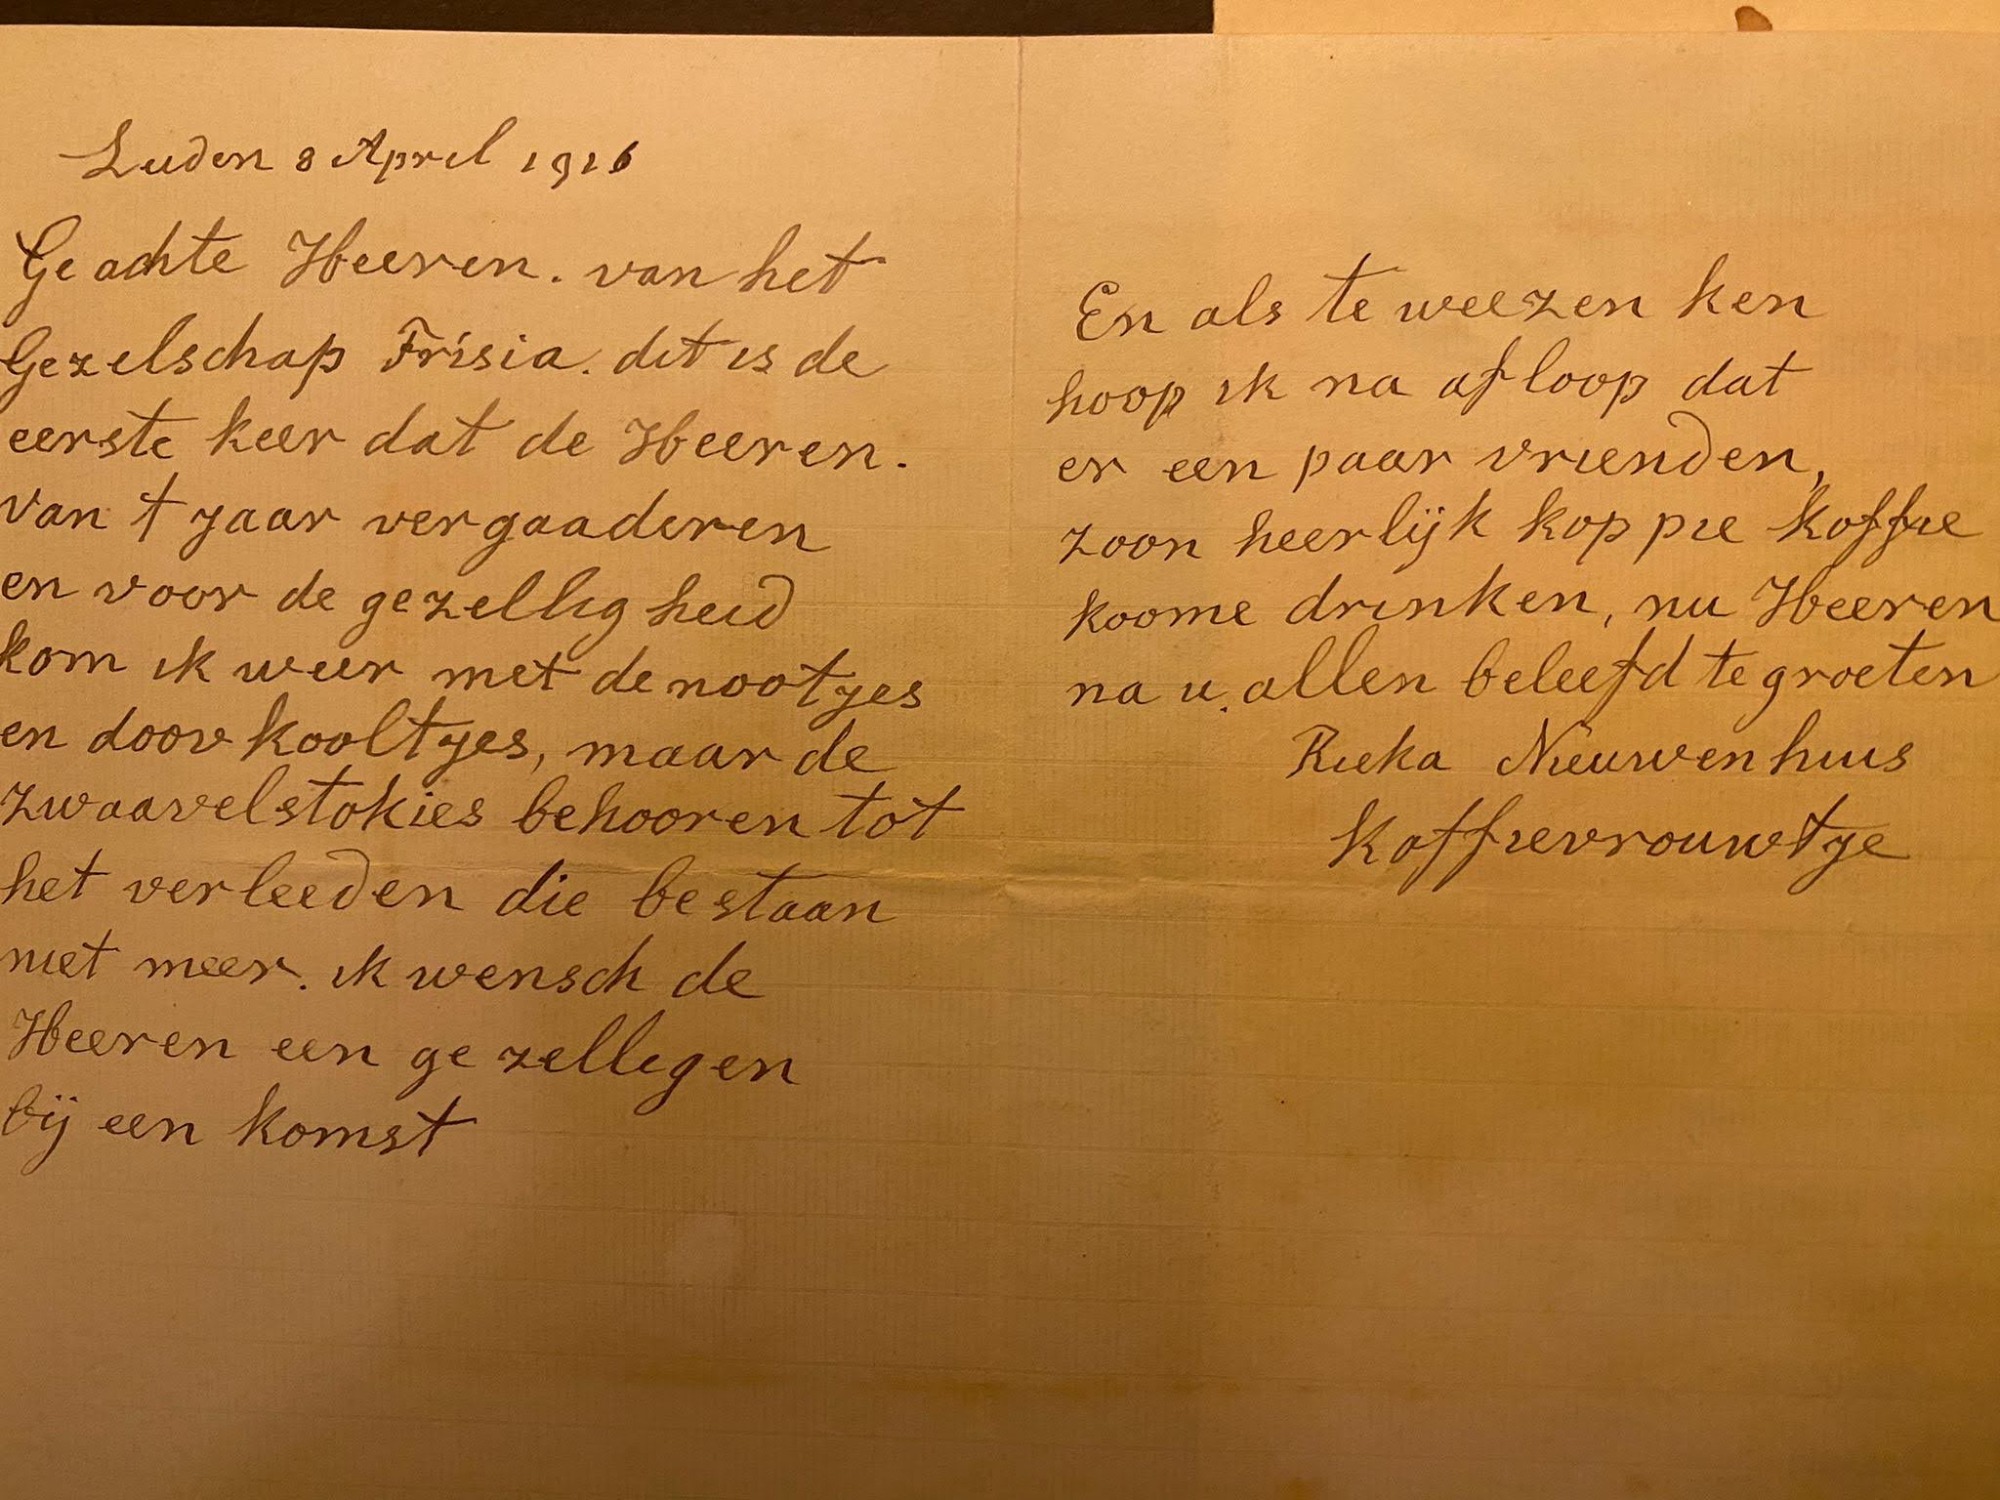 Leiden 8 April 1916
Geachte Heeren. van het
Gezelschap Frisia. dit is de
eerste keer dat de Heeren.
van t jaar vergaaderen
en voor de gezelligheid
kom ik weer met de nootjes
en doovkooltjes, maar de
zwaavelstokies behooren tot
het verleeden die bestaan
niet meer. ik wensch de
Heeren een gezelligen
bij een komst
En als te weezen ken
hoop ik na afloop dat
er een paar vrienden,
zoon heerlijk koppie koffie
koome drinken, nu Heeren
na u. allen beleefd te groeten
Rieka Nieuwenhuis
Koffievrouwtje